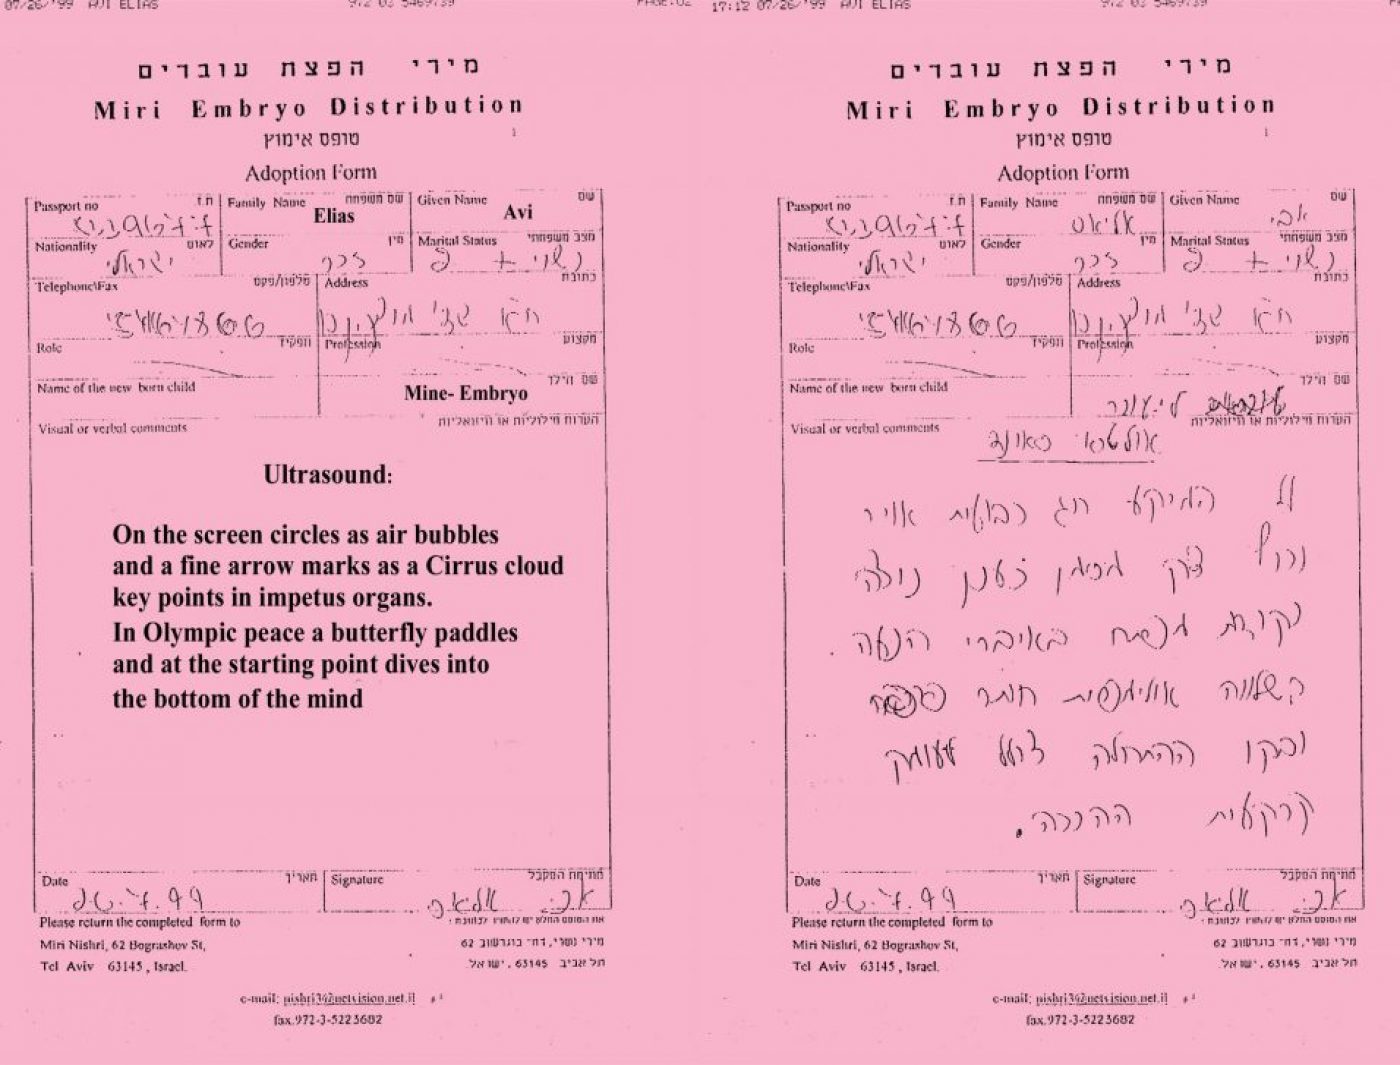 07/26/'99 AVI ELIAS 972 03 5469739 PAGE:02
מירי הפצת עוברים
Miri Embryo Distribution
טופס אימוץ
Adoption Form
Passport no ת.ז
Family Name שם משפחה
Elias
Given Name שם
Avi
Nationality לאום
ישראלי
Gender מין
זכר
Marital Status מצב משפחתי
נשוי +
Telephone\Fax טלפון/פקס
Address כתובת
Role תפקיד
Profession מקצוע
Name of the new born child שם הילד
Mine- Embryo
Visual or verbal comments הערות מילוליות או חיזואליות
Ultrasound:
On the screen circles as air bubbles
and a fine arrow marks as a Cirrus cloud
key points in impetus organs.
In Olympic peace a butterfly paddles
and at the starting point dives into
the bottom of the mind
Date תאריך
Signature חתימת המקבל
אבי אליאס
Please return the completed form to
Miri Nishri, 62 Bograshov St, מירי נשרי, רח' בוגרשוב 62
Tel Aviv 63145 , Israel. תל אביב 63145 , ישראל.
e-mail: nishri3@netvision.net.il
fax.972-3-5223682
17:12 07/26/'99 AVI ELIAS 972 03 5469739
מירי הפצת עוברים
Miri Embryo Distribution
טופס אימוץ
Adoption Form
Passport no ת.ז
Family Name שם משפחה
אליאס
Given Name שם
אבי
Nationality לאום
ישראלי
Gender מין
זכר
Marital Status מצב משפחתי
נשוי +
Telephone\Fax טלפון/פקס
Address כתובת
Role תפקיד
Profession מקצוע
Name of the new born child שם הילד
Visual or verbal comments הערות מילוליות או חיזואליות
אולטרא סאונד
על המרקע חג כבועות אויר
וחץ דק מסמן כענן נוצה
נקודות מפתח באיברי הנעה
בשלווה אולימפית חותר פרפר
ובקו ההתחלה צולל לעומק
קרקעית ההכרה.
Date תאריך
Signature חתימת המקבל
אבי אליאס
Please return the completed form to
Miri Nishri, 62 Bograshov St, מירי נשרי, רח' בוגרשוב 62
Tel Aviv 63145 , Israel. תל אביב 63145 , ישראל.
e-mail: nishri3@netvision.net.il
fax.972-3-5223682